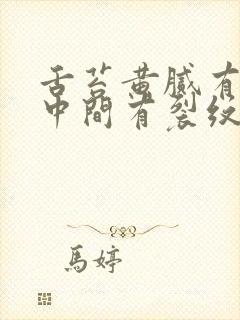 舌苔黄腻有
中間有裂纹
馬婷